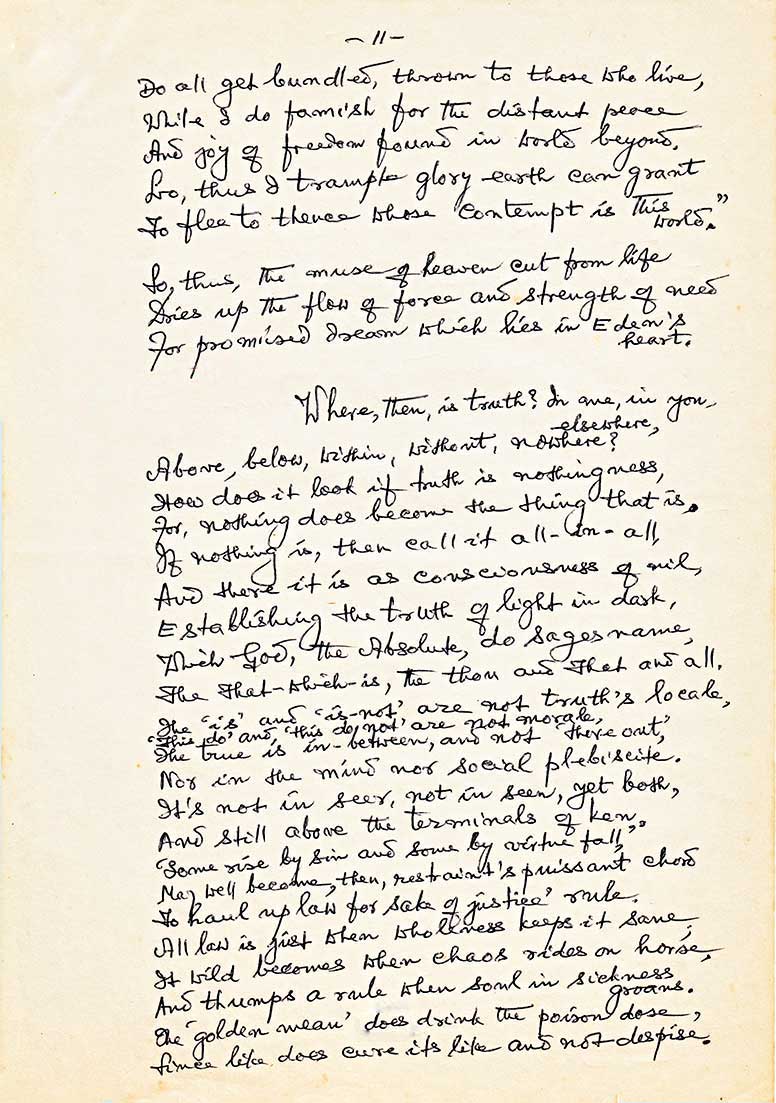 - 11 -
Do all get bundled, thrown to those who live,
While I do famish for the distant peace
And joy of freedom found in world beyond.
Lo, thus I trample glory earth can grant
To flee to thence whose contempt is this world."
So, thus, the muse of heaven cut from life
Dries up the flow of force and strength of need
For promised dream which lies in Eden's heart.
Where, then, is truth? In me, in you,
Above, below, within, without, elsewhere, nowhere?
How does it look if truth is nothingness,
For, nothing does become the thing that is.
If nothing is, then call it all-in-all,
And there it is as consciousness of nil,
Establishing the truth of light in dark,
Which God, the Absolute, do sages name,
The That-which-is, the thou and That and all.
The 'is' and 'is-not' are not truth's locale,
'This do' and 'this do not' are not morale,
The true is in-between, and not "there out,"
Nor in the mind nor social plebiscite.
It's not in seer, not in seen, yet both,
And still above the terminals of ken.
"Some rise by sin and some by virtue fall,"
May well become, then, restraint's puissant chord
To haul up law for sake of justice' rule.
All law is just when wholeness keeps it sane,
It wild becomes when chaos rides on horse,
And thumps a rule when soul in sickness groans.
The 'golden mean' does drink the poison dose,
Since like does cure its like and not despise.